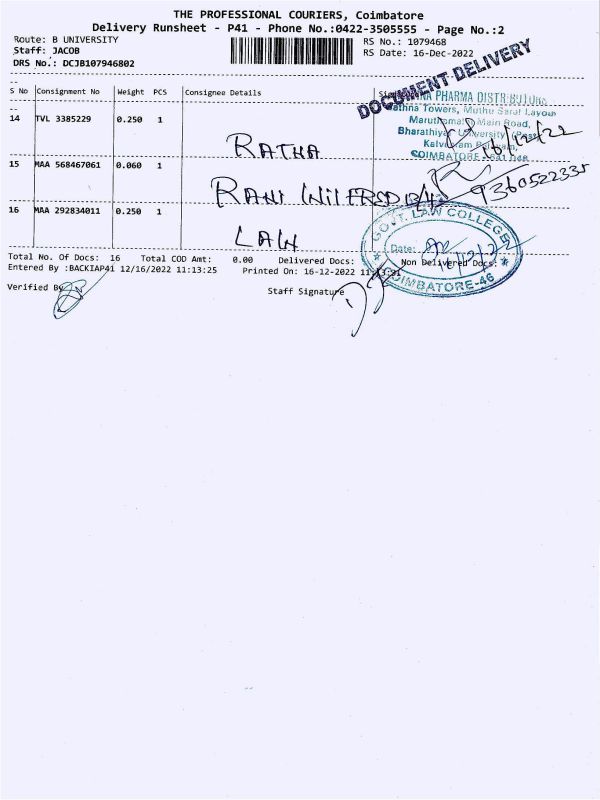 THE PROFESSIONAL COURIERS, Coimbatore
Delivery Runsheet - P41 - Phone No.:0422-3505555 - Page No.:2
Route: B UNIVERSITY
Staff: JACOB
DRS No.: DCJB107946802
RS No.: 1079468
RS Date: 16-Dec-2022
DOCUMENT DELIVERY
--
S No Consignment No Weight PCS Consignee Details
--
14 TVL 3385229 0.250 1
RATHA
PHARMA DISTRIBUTORS
Towers, Muthu Layout
Main Road,
Bharathiyar University
COIMBATORE
16/12/22
15 MAA 568467061 0.060 1
RANI WILFRSD
9360522335
16 MAA 292834011 0.250 1
LAW
GOVT. LAW COLLEGE
Date:
16/12/22
COIMBATORE-46
Total No. Of Docs: 16 Total COD Amt: 0.00 Delivered Docs: Non Delivered Docs:
Entered By :BACKIAP41 12/16/2022 11:13:25 Printed On: 16-12-2022
Verified By
Staff Signature